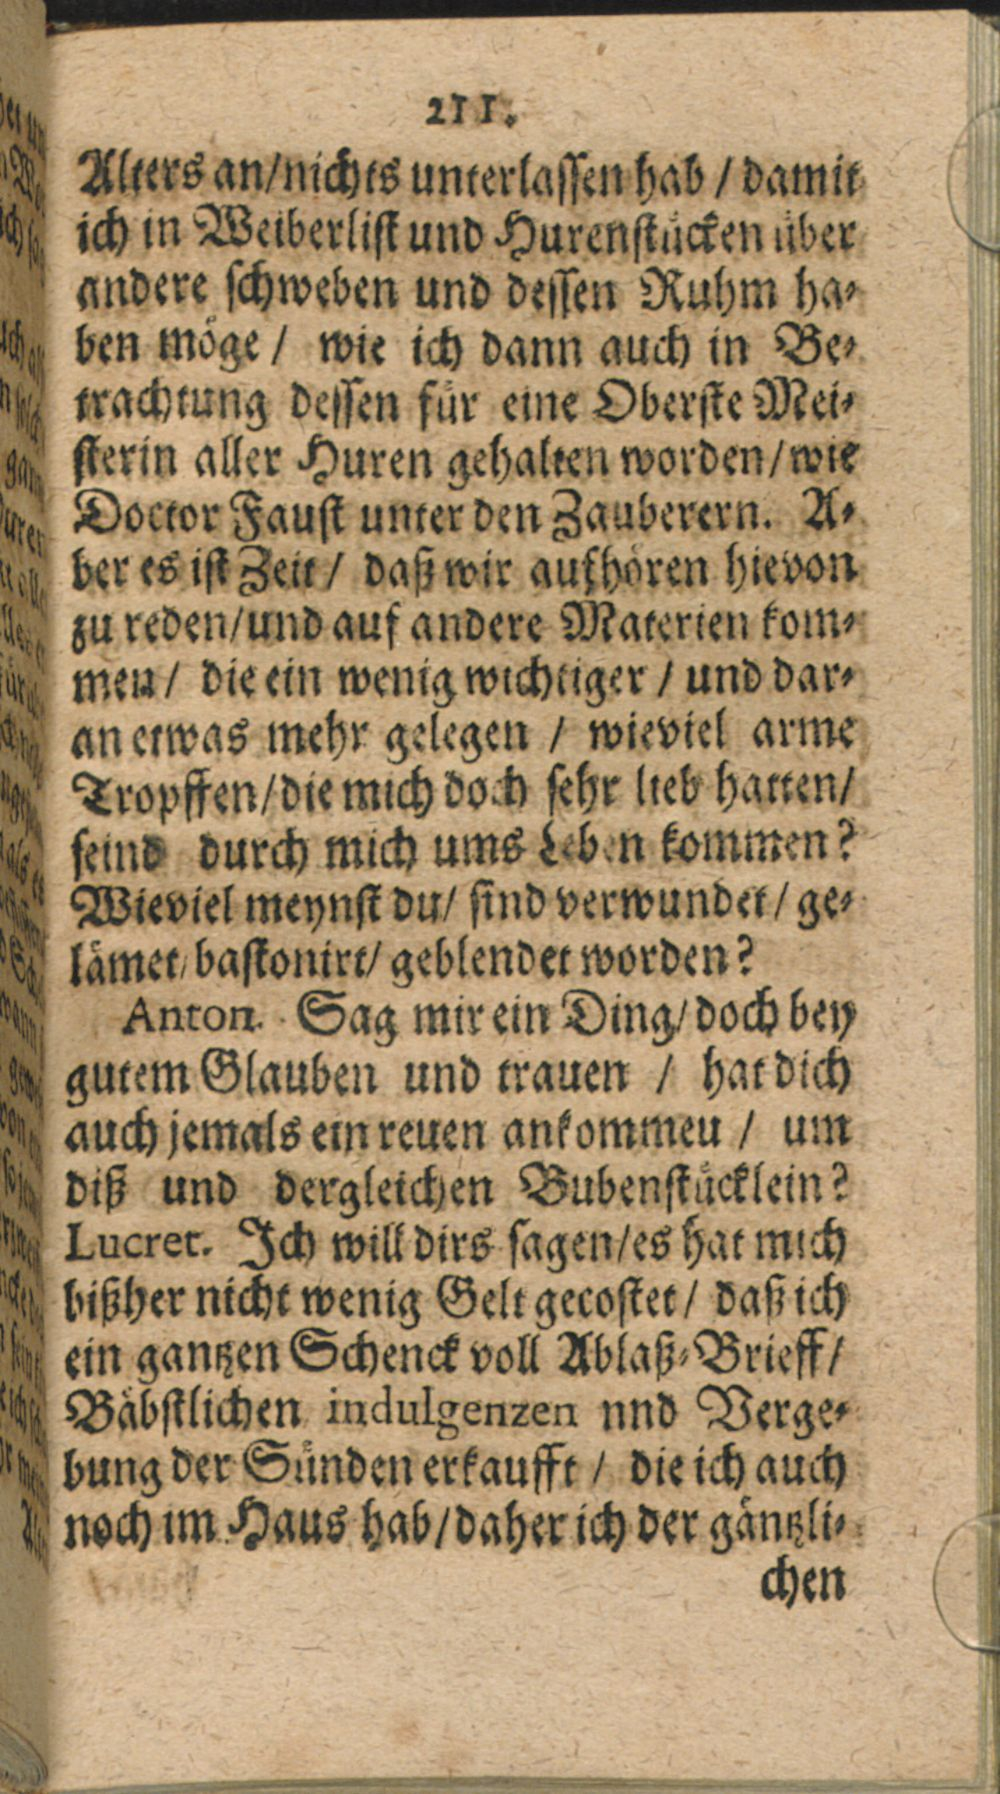 211.
Alters an/nichts unterlassen hab / damit
ich in Weiberlist und Hurenstücken über
andere schweben und dessen Ruhm ha-
ben möge / wie ich dann auch in Be-
trachtung dessen für eine Oberste Mei-
sterin aller Huren gehalten worden/wie
Doctor Faust unter den Zauberern. A-
ber es ist Zeit / daß wir aufhören hievon
zu reden/und auf andere Materien kom-
men / die ein wenig wichtiger / und dar-
an etwas mehr gelegen / wieviel arme
Tropffen/die mich doch sehr lieb hatten/
seind durch mich ums Leben kommen?
Wieviel meynst du/ sind verwundet/ ge-
lämet/bastonirt/ geblendet worden?
Anton. Sag mir ein Ding/doch bey
gutem Glauben und trauen / hat dich
auch jemals ein reuen ankommeu / um
diß und dergleichen Bubenstücklein?
Lucret. Ich will dirs sagen/es hat mich
bißher nicht wenig Gelt gecostet/ daß ich
ein gantzen Schenck voll Ablaß-Brieff/
Bäbstlichen indulgenzen nnd Verge-
bung der Sünden erkaufft / die ich auch
noch im Haus hab/daher ich der gäntzli-
chen